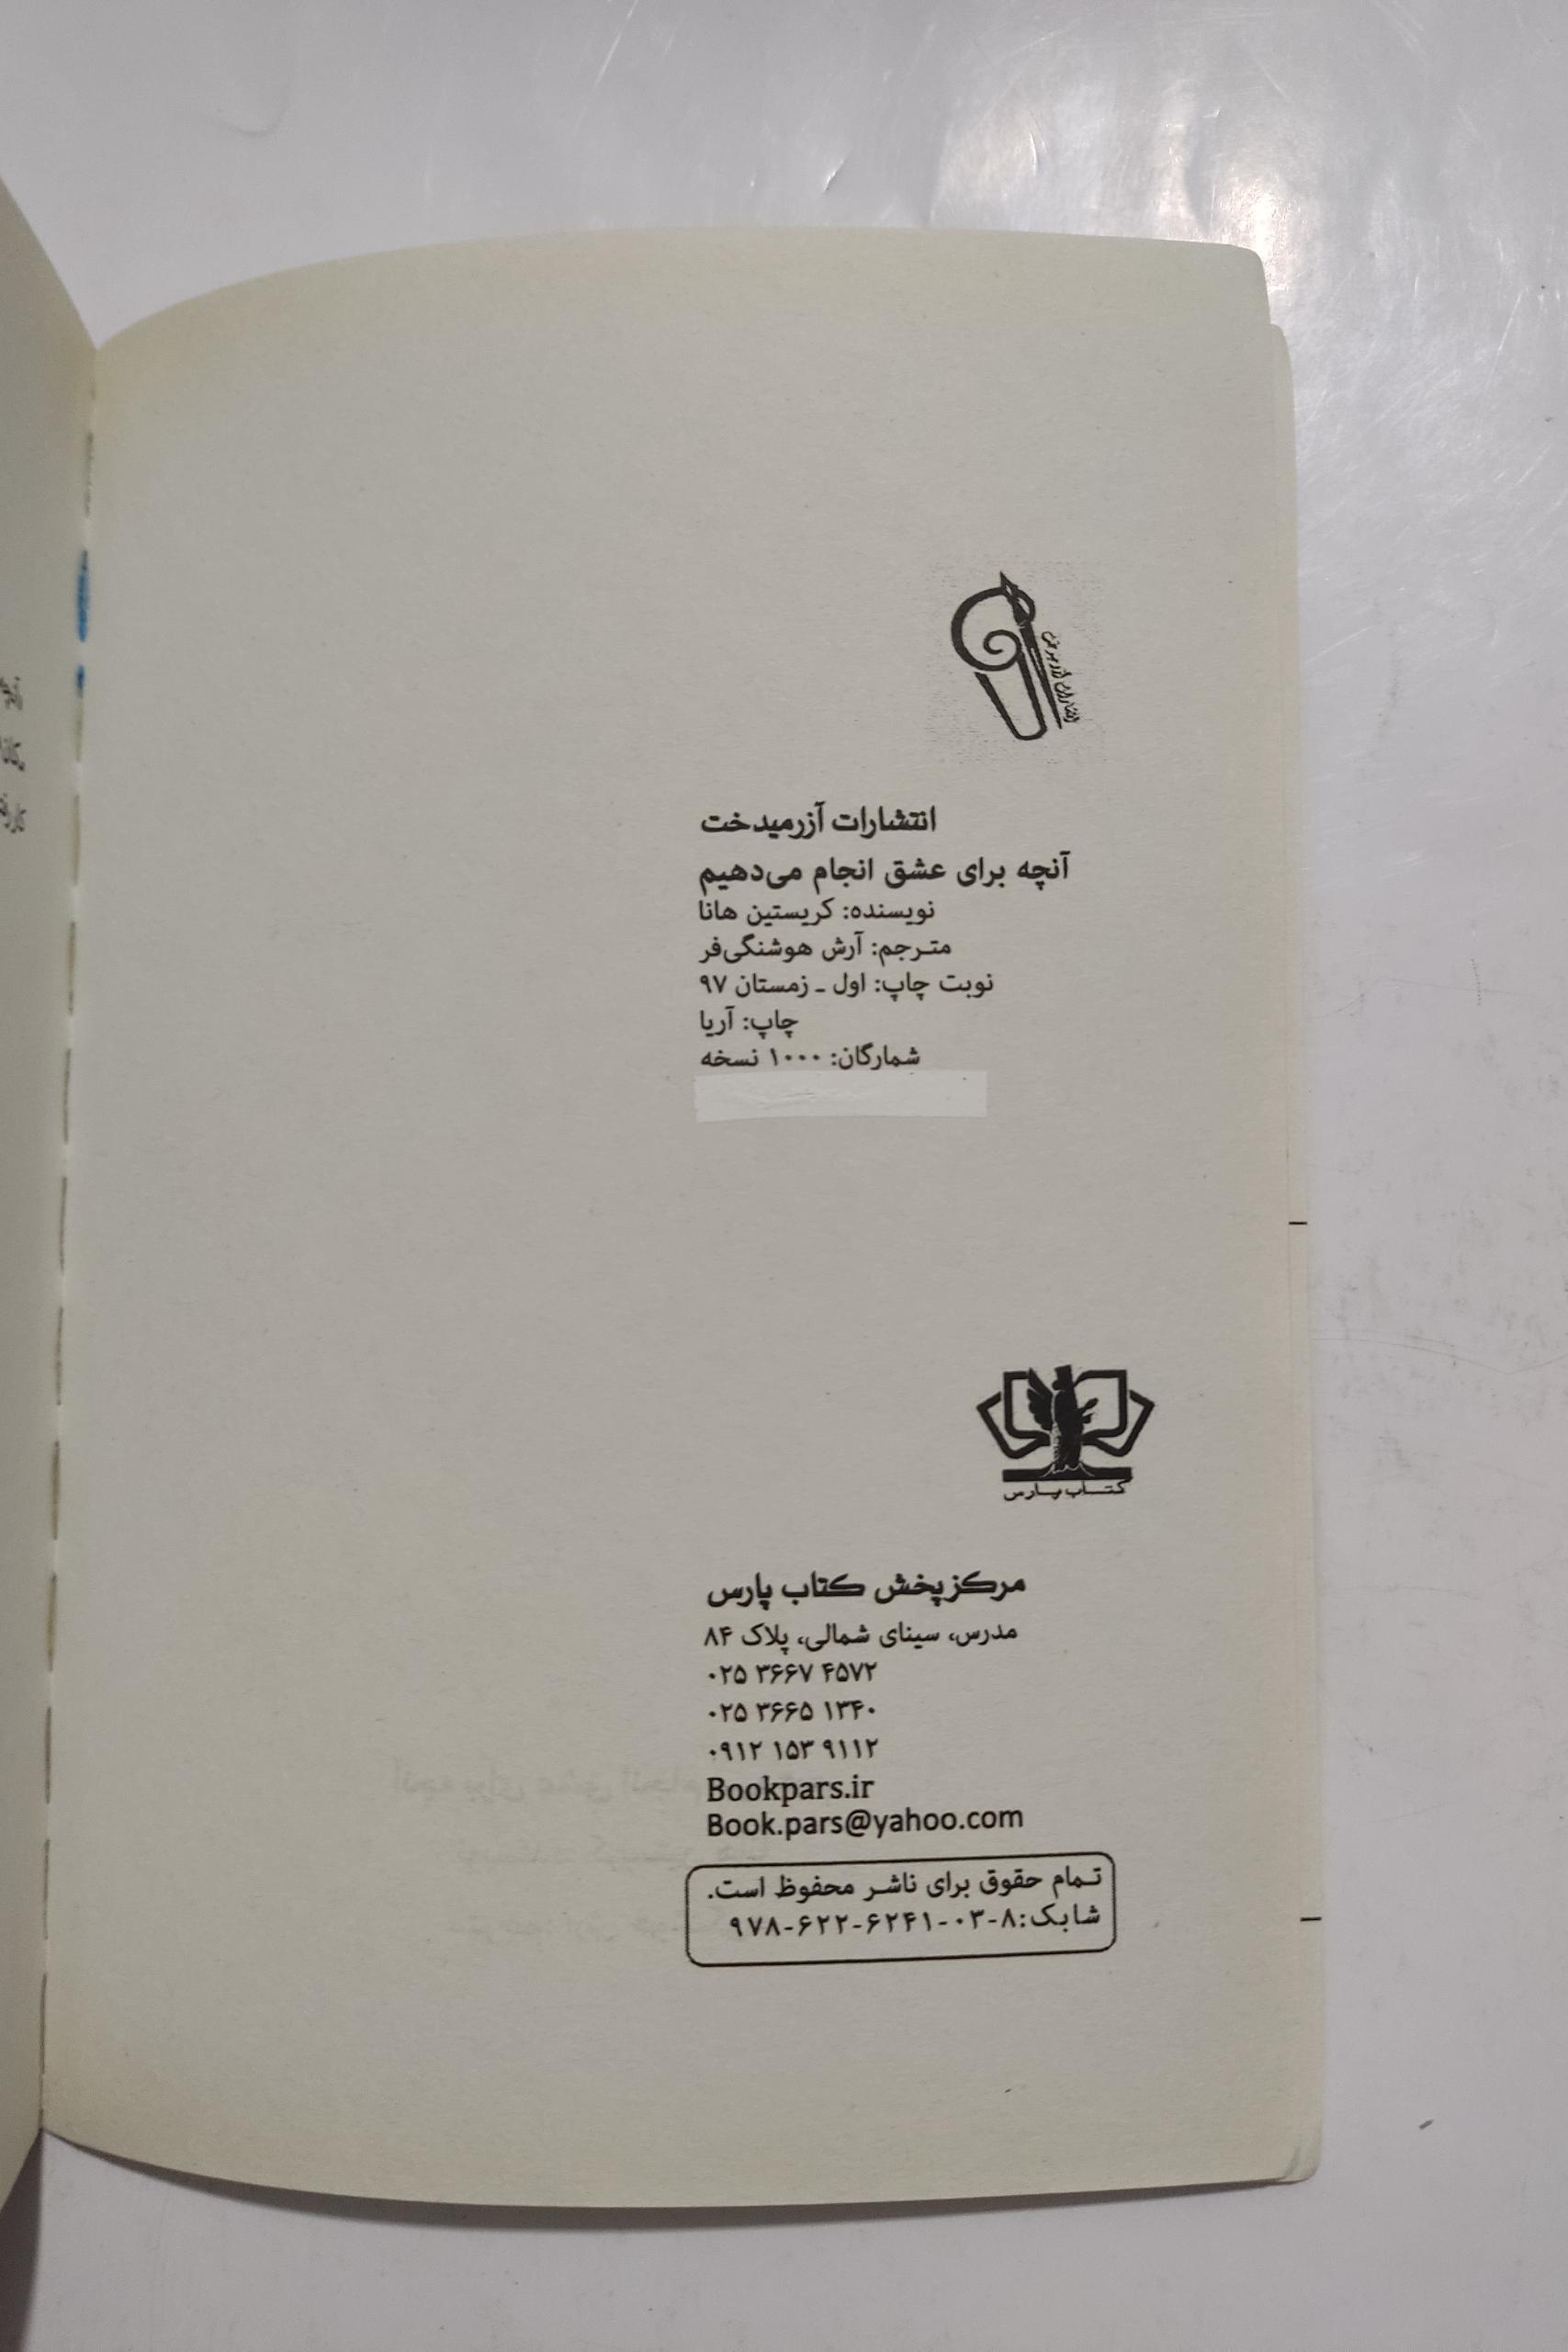 انتشارات آزرمیدخت
آنچه برای عشق انجام می‌دهیم
نویسنده: کریستین هانا
مترجم: آرش هوشنگی‌فر
نوبت چاپ: اول ـ زمستان ۹۷
چاپ: آریا
شمارگان: ۱۰۰۰ نسخه
کتاب پارس
مرکز پخش کتاب پارس
مدرس، سینای شمالی، پلاک ۸۴
۰۲۵ ۳۶۶۷ ۴۵۷۲
۰۲۵ ۳۶۶۵ ۱۳۴۰
۰۹۱۲ ۱۵۳ ۹۱۱۲
Bookpars.ir
Book.pars@yahoo.com
تمام حقوق برای ناشر محفوظ است.
شابک: ۸-۰۳-۶۲۴۱-۶۲۲-۹۷۸